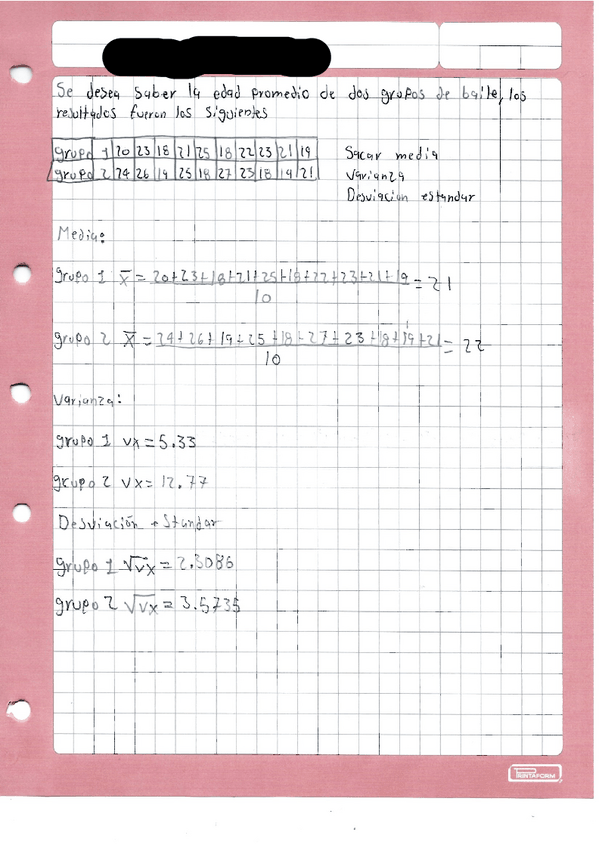 Se desea saber la edad promedio de dos grupos de baile, los
resultados fueron los siguientes
grupo 1 20 23 18 21 25 18 22 23 21 19
grupo 2 24 26 19 25 18 27 23 18 19 21
Sacar media
Varianza
Desviacion estandar
Media:
grupo 1 x̄ = 20+23+18+21+25+18+22+23+21+19 = 21
10
grupo 2 x̄ = 24+26+19+25+18+27+23+18+19+21 = 22
10
Varianza:
grupo 1 vx = 5.33
grupo 2 vx = 12.77
Desviación estandar
grupo 1 √vx = 2.3086
grupo 2 √vx = 3.5735
PRINTAFORM